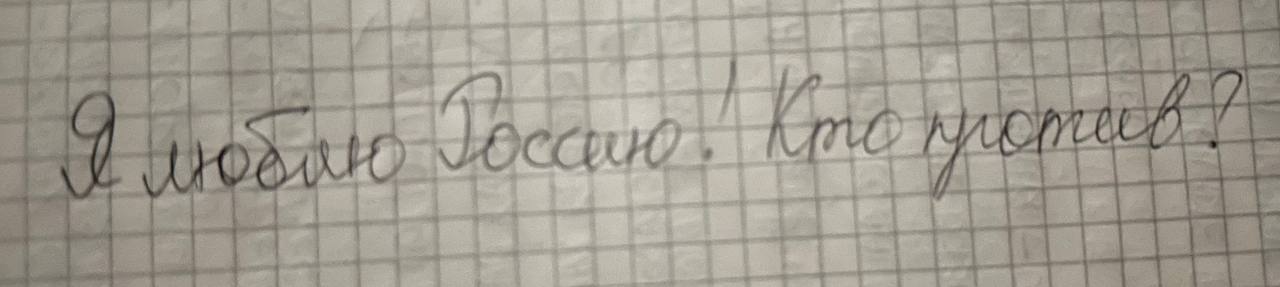 Я люблю Россию! Кто против?